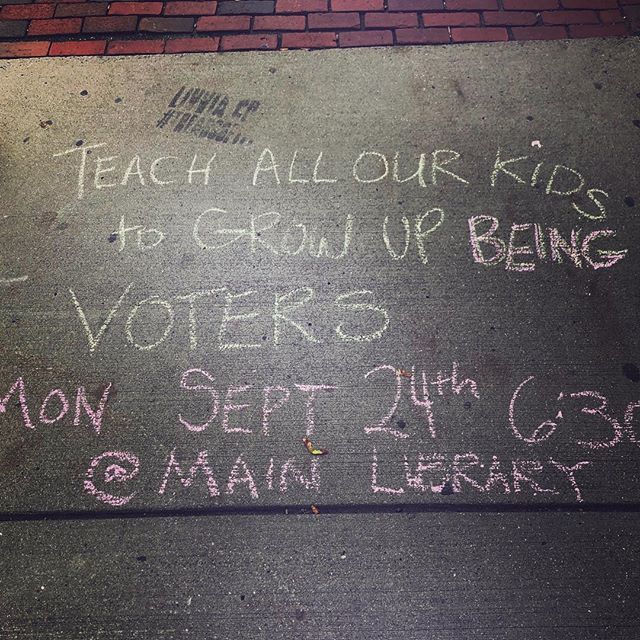 TEACH ALL OUR KIDS
to GROW UP BEING
VOTERS
MON SEPT 24th 630
@ MAIN LIBRARY